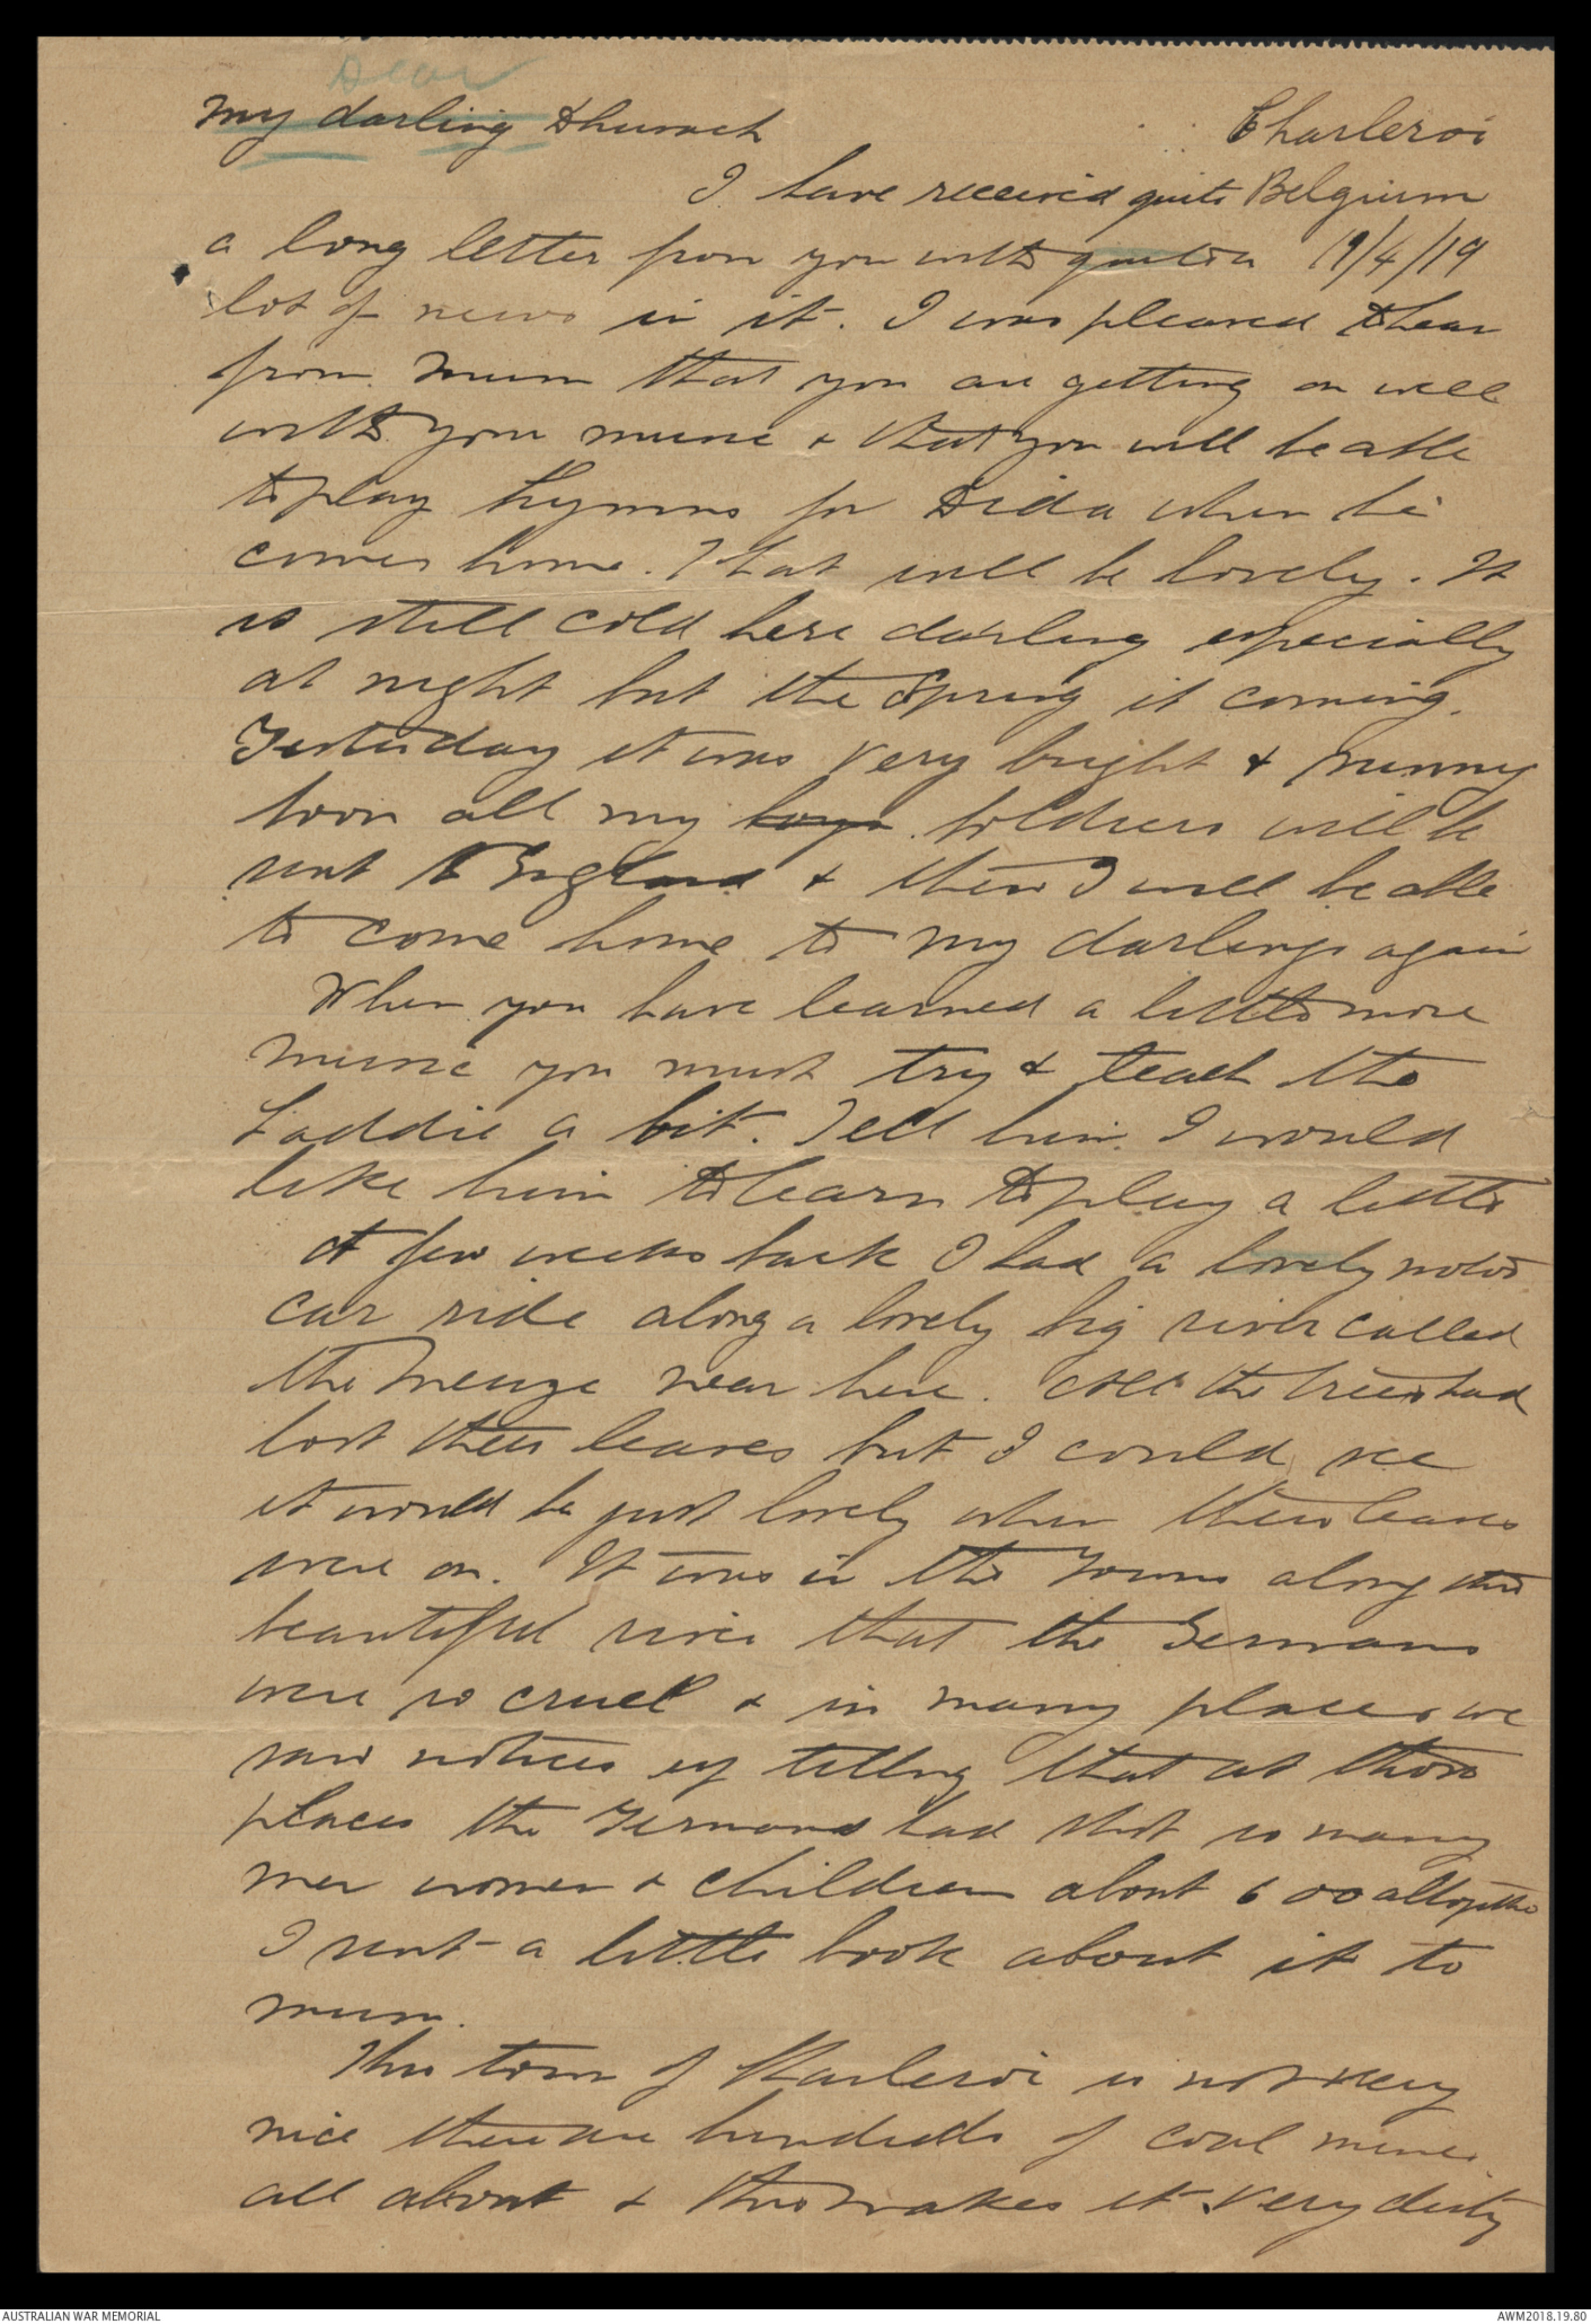 Dear
My darling Thurach Charleroi
I have received quite Belgium
a long letter from you with quite a 19/4/19
lot of news in it. I was pleased to hear
from Mum that you are getting on well
with your music & that you will be able
to play hymns for Dida when he
comes home. That will be lovely. It
is still cold here darling especially
at night but the Spring it coming.
Yesterday it was very bright & sunny
soon all my boys soldiers will be
sent to England & then I will be able
to come home to my darlings again
When you have learned a little more
music you must try & teach the
Laddie a bit. Tell him I would
like him to learn to play a little
A few weeks back I had a lovely motor
car ride along a lovely big river called
the Meuze near here. All the trees had
lost their leaves but I could see
it would be just lovely when their leaves
were on. It was in the towns along this
beautiful river that the Germans
were so cruel & in many places we
saw notices up telling that at those
places the Germans had shot so many
men women & children about 600 altogether
I sent a little book about it to
mum.
This town of Charleroi is not very
nice there are hundreds of coal mines
all about & this makes it very dirty
AUSTRALIAN WAR MEMORIAL AWM2018.19.80